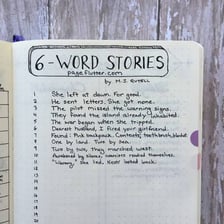 6-WORD STORIES
pageflutter.com
by M.J.
1 She left at dawn. For good.
2 He sent letters. She got none.
3 The pilot missed the warning signs.
4 They found the island already inhabited.
5 The war began when she tripped.
6 Dearest husband, I fired your girlfriend.
7 Found: Pink backpack. Contents: toothbrush, blanket.
8 One by land. Two by sea.
9 Two by two, they marched west.
10 Awakened by silence, warriors readied themselves.
11 "Worry," she lied. Never looked back.
12
13
14
15
16
17
18
19
20